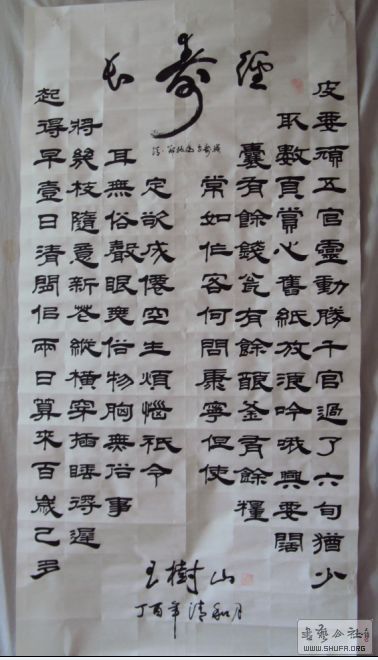 長壽經
常如作客何問康寧但使
囊有餘錢瓮有餘釀釜有餘糧
取數頁賞心舊紙放浪吟哦興要闊
皮要頑五官靈動勝千官過了六旬猶少
定欲成僊空生煩惱祇令
耳無俗聲眼無俗物胸無俗事
將幾枝隨意新花縱橫穿插睡得遲
起得早壹日清閒佀兩日算來百歲已多
王樹山
丁酉年清和月
WWW.SHUFA.ORG